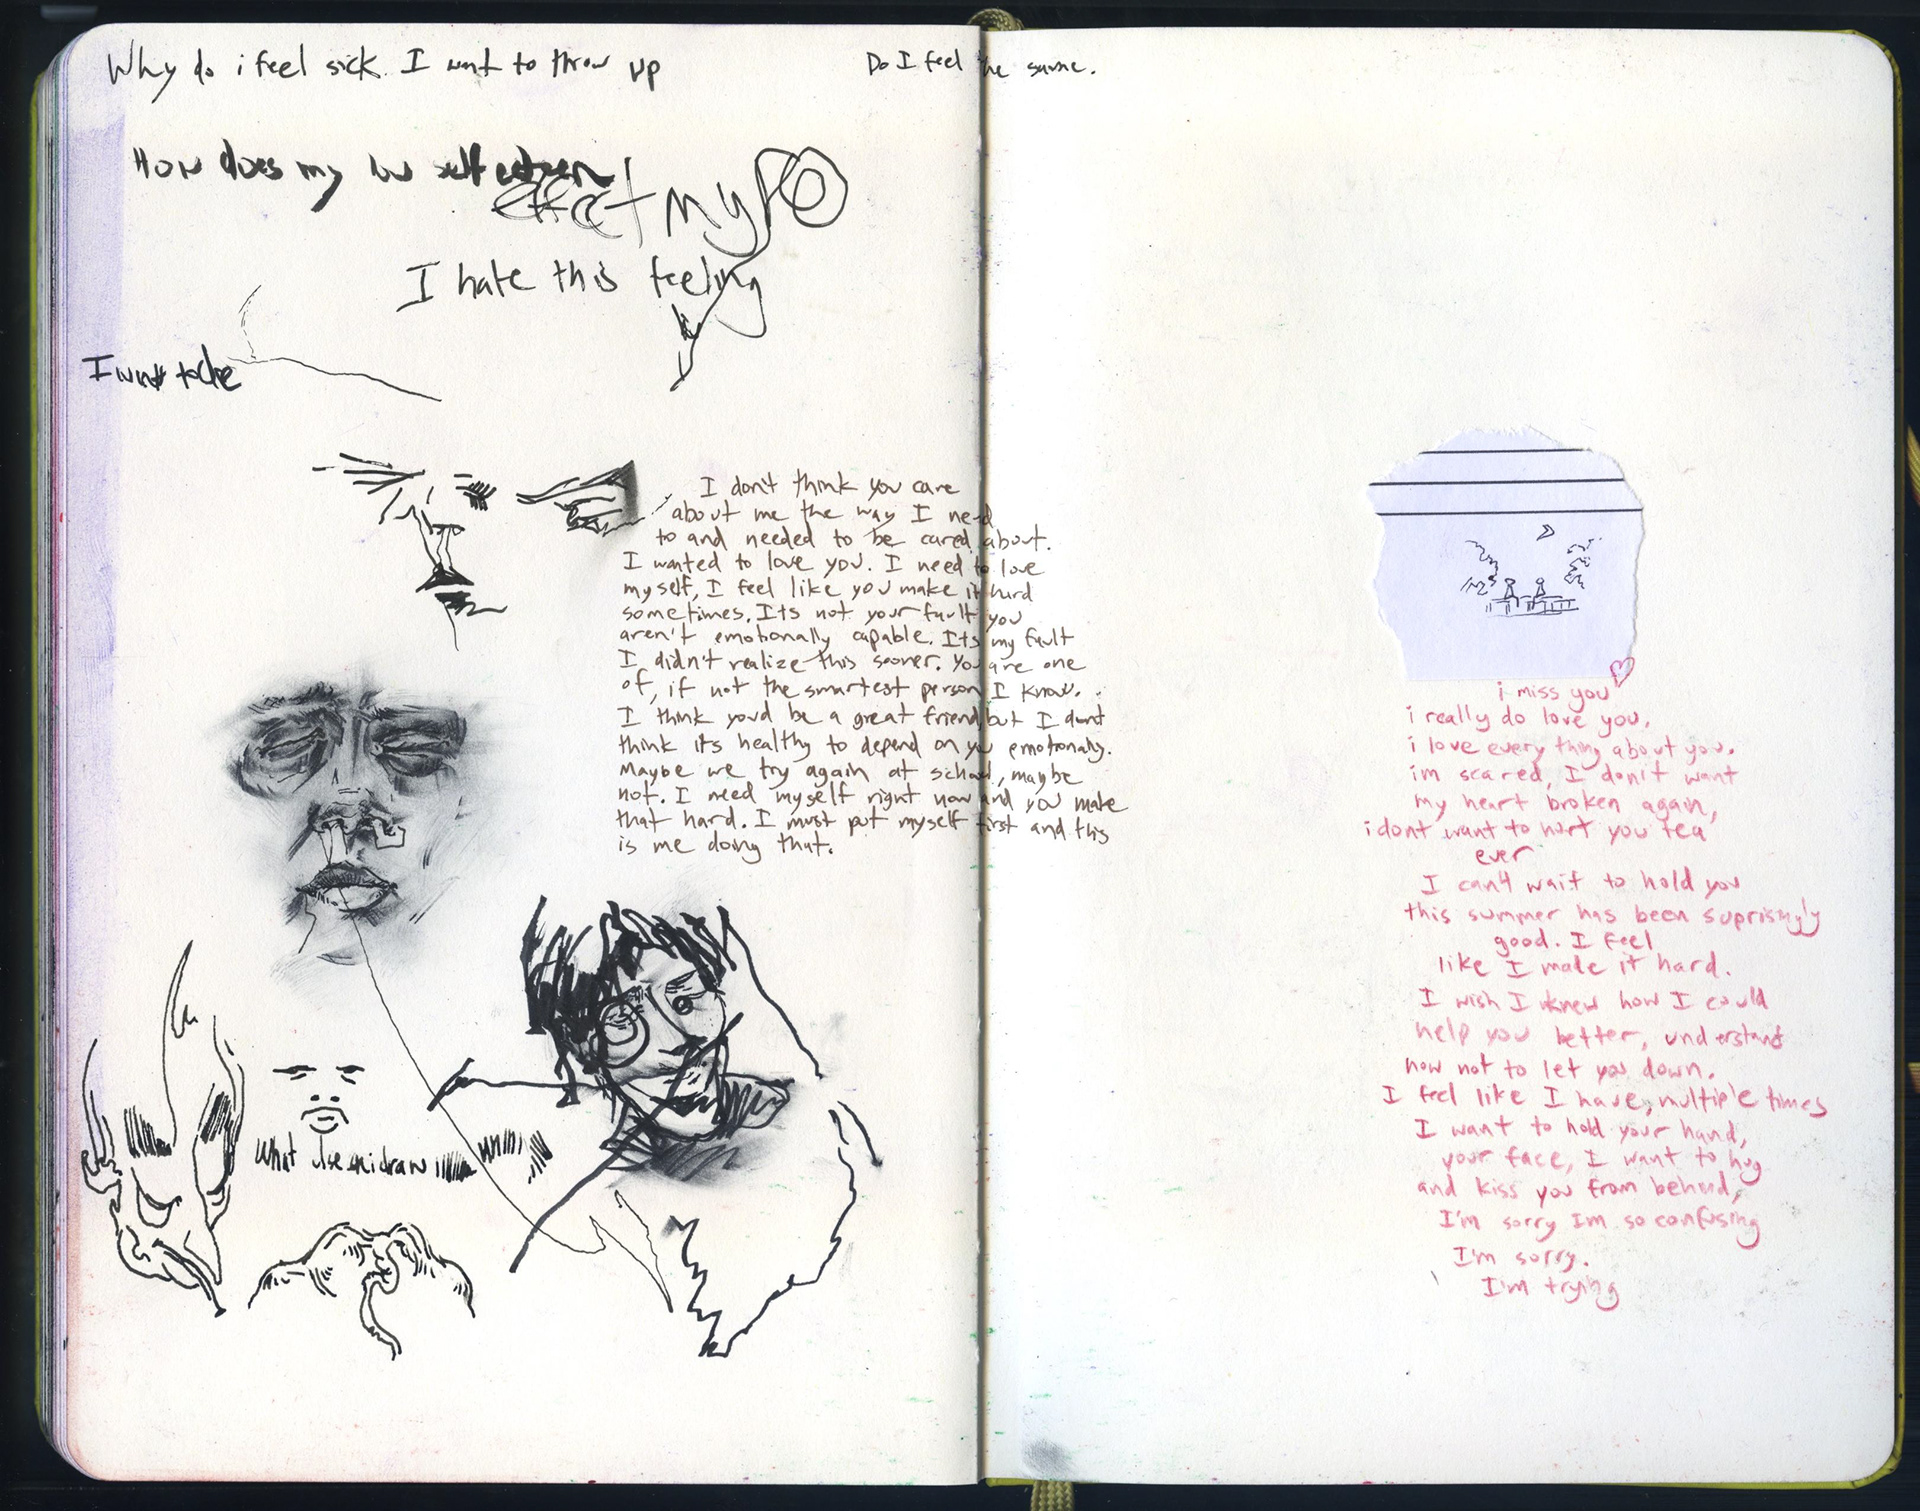 Why do i feel sick. I want to throw up
Do I feel the same.
How does my low self esteem
effect my
I hate this feeling
I want to die
I don't think you care
about me the way I need
to and needed to be cared about.
I wanted to love you. I need to love
myself, I feel like you make it hard
sometimes. Its not your fault you
aren't emotionally capable. Its my fault
I didn't realize this sooner. You are one
of, if not the smartest person I know.
I think youd be a great friend but I dont
think its healthy to depend on you emotionally.
Maybe we try again at school, maybe
not. I need myself right now and you make
that hard. I must put myself first and this
is me doing that.
What else can i draw
i miss you
i really do love you,
i love every thing about you.
im scared, I don't want
my heart broken again,
i dont want to hurt you tea
ever
I can't wait to hold you
this summer has been suprisingly
good. I feel
like I made it hard.
I wish I knew how I could
help you better, understand
how not to let you down.
I feel like I have, multiple times
I want to hold your hand,
your face, I want to hug
and kiss you from behind,
I'm sorry Im so confusing
I'm sorry.
I'm trying